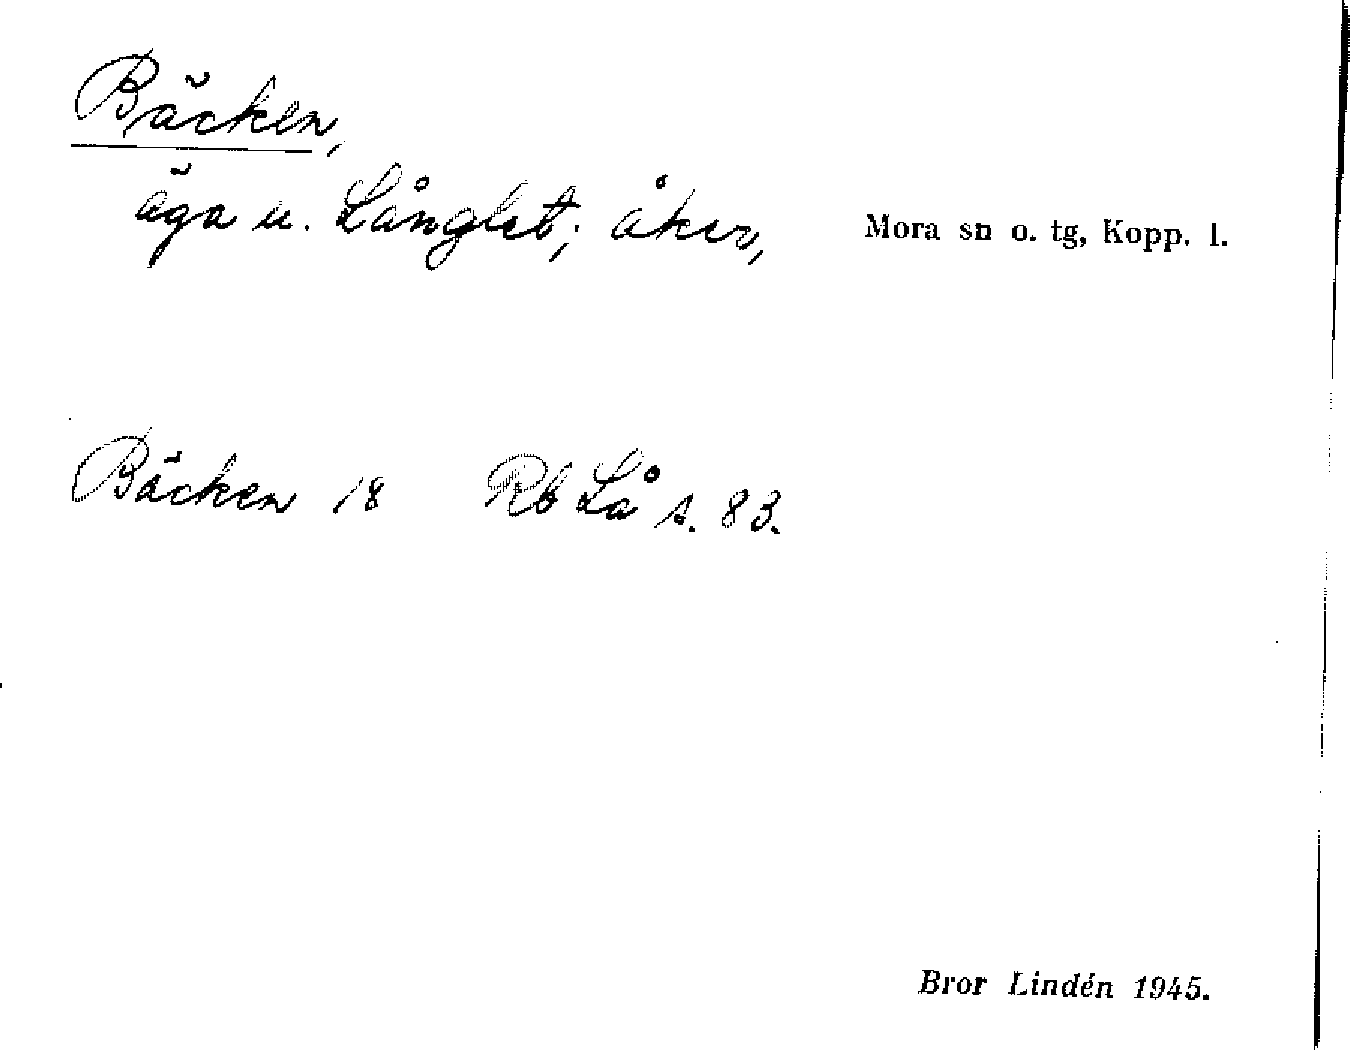 Bäcken,
äga u. Långlet; åker,
Mora sn o. tg, Kopp. l.
Bäcken 18 Rb Lå s. 83.
Bror Lindén 1945.